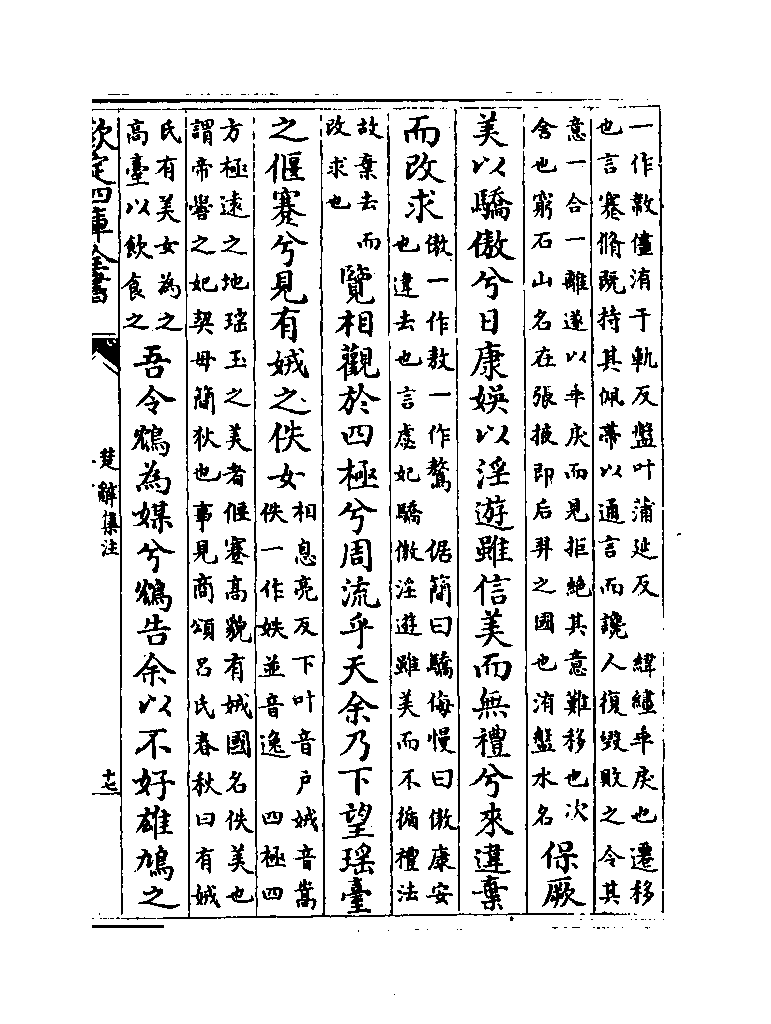 一作洧于軌反盤叶蒲延反　緯繣乖戾也遷移
也言蹇脩既持其佩帶以通言而讒人復毀敗之令其
意一合一離遂以乖戾而見拒絶其意難移也次
舍也窮石山名在張掖即后羿之國也洧盤水名
保厥
美以驕傲兮日康娱以淫遊雖信美而無禮兮來違棄
而改求
傲一作敖一作驁　倨簡曰驕侮慢曰傲康安
也違去也言虙妃驕傲淫遊雖美而不循禮法
故棄去而
改求也
覽相觀於四極兮周流乎天余乃下望瑤臺
之偃蹇兮見有娀之佚女
相息亮反下叶音戶娀音嵩
佚一作妷並音逸　四極四
方極遠之地瑤玉之美者偃蹇高貌有娀國名佚美也
謂帝嚳之妃契母簡狄也事見商頌吕氏春秋曰有娀
氏有美女為之
高臺以飲食之
吾令鴆為媒兮鴆告余以不好雄鳩之
欽定四庫全書
楚辭集注
十七